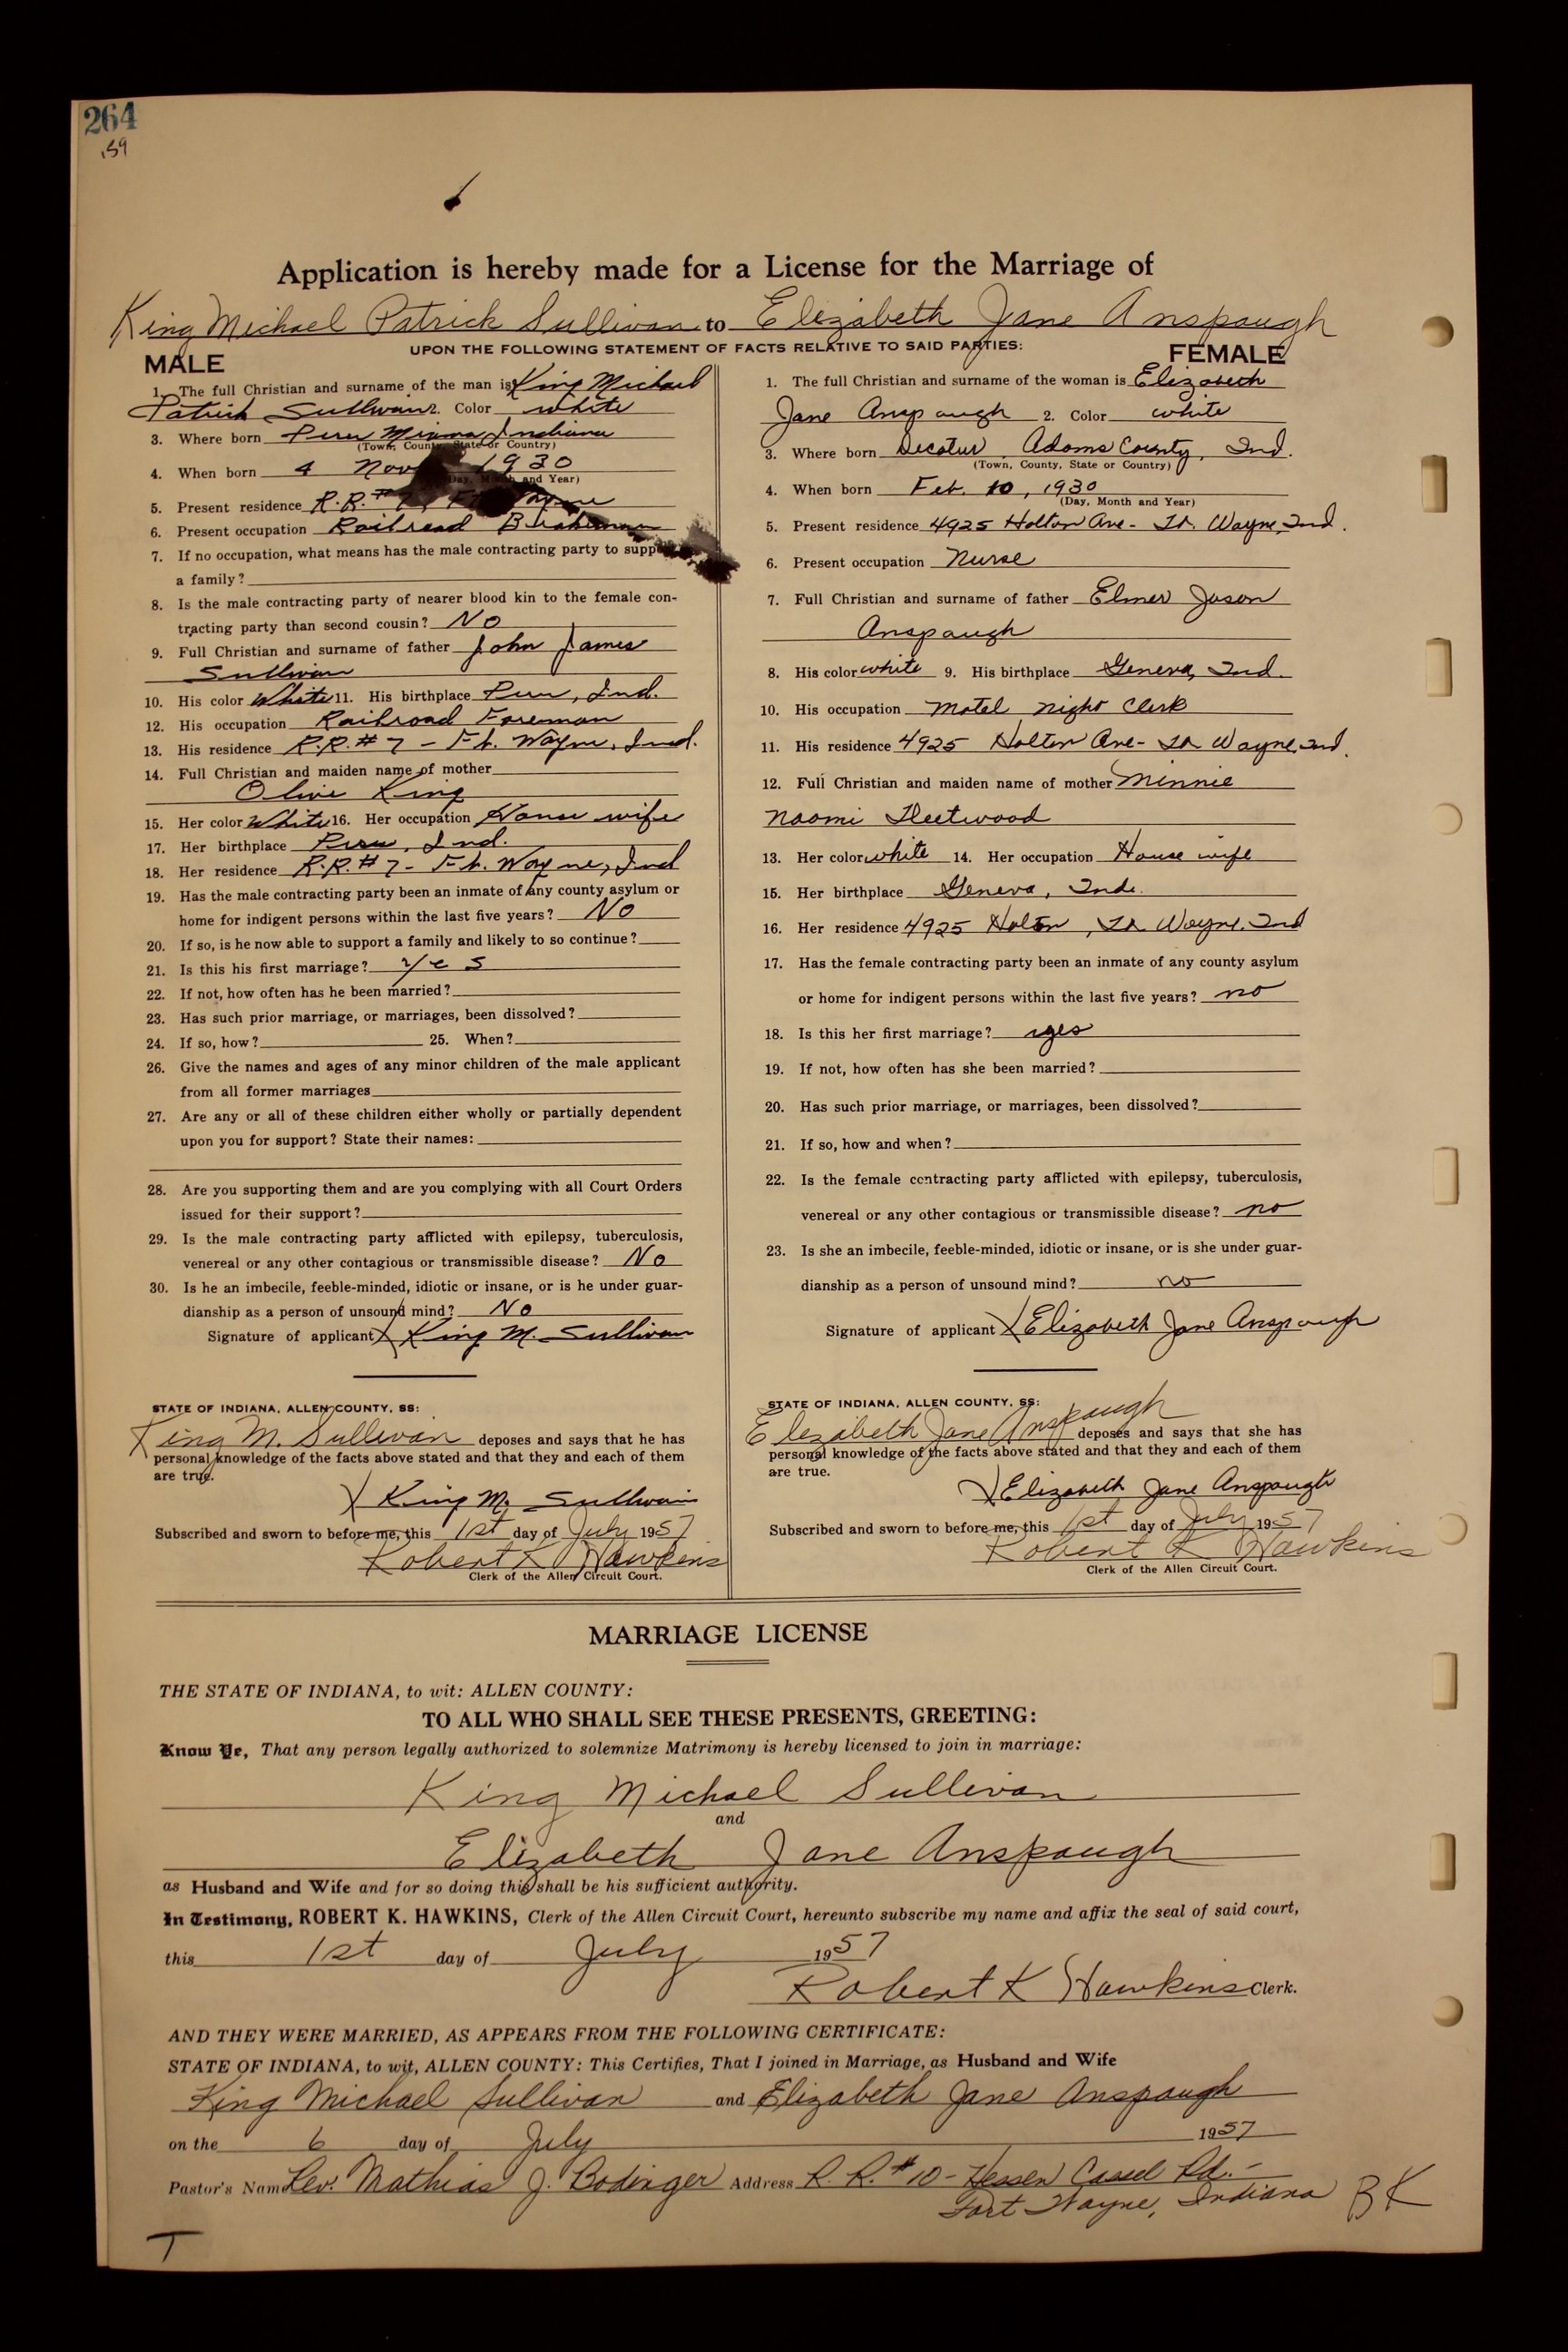 264
,59
Application is hereby made for a License for the Marriage of
King Michael Patrick Sullivan to Elizabeth Jane Anspaugh
UPON THE FOLLOWING STATEMENT OF FACTS RELATIVE TO SAID PARTIES:
MALE
1. The full Christian and surname of the man is King Michael
Patrick Sullivan 2. Color white
3. Where born Peru Miami Indiana
(Town, County, State or Country)
4. When born 4 Nov 1930
(Day, Month and Year)
5. Present residence R.R. #7, Ft Wayne
6. Present occupation Railroad Brakeman
7. If no occupation, what means has the male contracting party to support
a family?
8. Is the male contracting party of nearer blood kin to the female con-
tracting party than second cousin? No
9. Full Christian and surname of father John James
Sullivan
10. His color White 11. His birthplace Peru, Ind.
12. His occupation Railroad Foreman
13. His residence R.R. #7 - Ft. Wayne, Ind.
14. Full Christian and maiden name of mother
Olive King
15. Her color White 16. Her occupation House wife
17. Her birthplace Peru, Ind.
18. Her residence R.R. #7 - Ft. Wayne, Ind
19. Has the male contracting party been an inmate of any county asylum or
home for indigent persons within the last five years? No
20. If so, is he now able to support a family and likely to so continue?
21. Is this his first marriage? yes
22. If not, how often has he been married?
23. Has such prior marriage, or marriages, been dissolved?
24. If so, how? 25. When?
26. Give the names and ages of any minor children of the male applicant
from all former marriages
27. Are any or all of these children either wholly or partially dependent
upon you for support? State their names:
28. Are you supporting them and are you complying with all Court Orders
issued for their support?
29. Is the male contracting party afflicted with epilepsy, tuberculosis,
venereal or any other contagious or transmissible disease? No
30. Is he an imbecile, feeble-minded, idiotic or insane, or is he under guar-
dianship as a person of unsound mind? No
Signature of applicant X King M. Sullivan
STATE OF INDIANA, ALLEN COUNTY, SS:
King M. Sullivan deposes and says that he has
personal knowledge of the facts above stated and that they and each of them
are true.
X King M. Sullivan
Subscribed and sworn to before me, this 1st day of July 1957
Robert K Hawkins
Clerk of the Allen Circuit Court.
FEMALE
1. The full Christian and surname of the woman is Elizabeth
Jane Anspaugh 2. Color white
3. Where born Decatur, Adams County, Ind.
(Town, County, State or Country)
4. When born Feb. 10, 1930
(Day, Month and Year)
5. Present residence 4925 Holton Ave- Ft. Wayne, Ind.
6. Present occupation Nurse
7. Full Christian and surname of father Elmer Jason
Anspaugh
8. His color white 9. His birthplace Geneva, Ind.
10. His occupation Motel night Clerk
11. His residence 4925 Holton Ave- Ft Wayne, Ind.
12. Full Christian and maiden name of mother Minnie
Naomi Fleetwood
13. Her color white 14. Her occupation House wife
15. Her birthplace Geneva, Ind.
16. Her residence 4925 Holton, Ft. Wayne, Ind
17. Has the female contracting party been an inmate of any county asylum
or home for indigent persons within the last five years? no
18. Is this her first marriage? yes
19. If not, how often has she been married?
20. Has such prior marriage, or marriages, been dissolved?
21. If so, how and when?
22. Is the female contracting party afflicted with epilepsy, tuberculosis,
venereal or any other contagious or transmissible disease? no
23. Is she an imbecile, feeble-minded, idiotic or insane, or is she under guar-
dianship as a person of unsound mind? no
Signature of applicant X Elizabeth Jane Anspaugh
STATE OF INDIANA, ALLEN COUNTY, SS:
Elizabeth Jane Anspaugh deposes and says that she has
personal knowledge of the facts above stated and that they and each of them
are true.
X Elizabeth Jane Anspaugh
Subscribed and sworn to before me, this 1st day of July 1957
Robert K Hawkins
Clerk of the Allen Circuit Court.
MARRIAGE LICENSE
THE STATE OF INDIANA, to wit: ALLEN COUNTY:
TO ALL WHO SHALL SEE THESE PRESENTS, GREETING:
Know Ye, That any person legally authorized to solemnize Matrimony is hereby licensed to join in marriage:
King Michael Sullivan
and
Elizabeth Jane Anspaugh
as Husband and Wife and for so doing this shall be his sufficient authority.
In Testimony, ROBERT K. HAWKINS, Clerk of the Allen Circuit Court, hereunto subscribe my name and affix the seal of said court,
this 1st day of July 1957
Robert K Hawkins Clerk.
AND THEY WERE MARRIED, AS APPEARS FROM THE FOLLOWING CERTIFICATE:
STATE OF INDIANA, to wit, ALLEN COUNTY: This Certifies, That I joined in Marriage, as Husband and Wife
King Michael Sullivan and Elizabeth Jane Anspaugh
on the 6 day of July 1957
Pastor's Name Rev. Mathias J. Bodinger Address R. R. #10 - Hessen Cassel Rd. -
Fort Wayne, Indiana BK
T